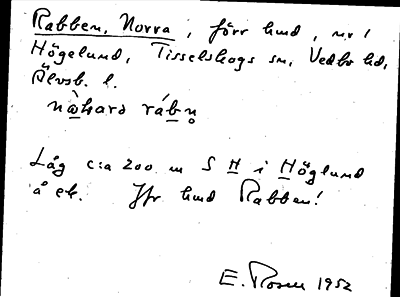 Rabben, Norra, förr hmd, nr 1
Högelund, Tisselskogs sn, Vedbo hd,
Älvsb. l.
Låg c:a 200 m S H i Höglund
å ek. Jfr hmd Rabben!
E. Rosen 1952